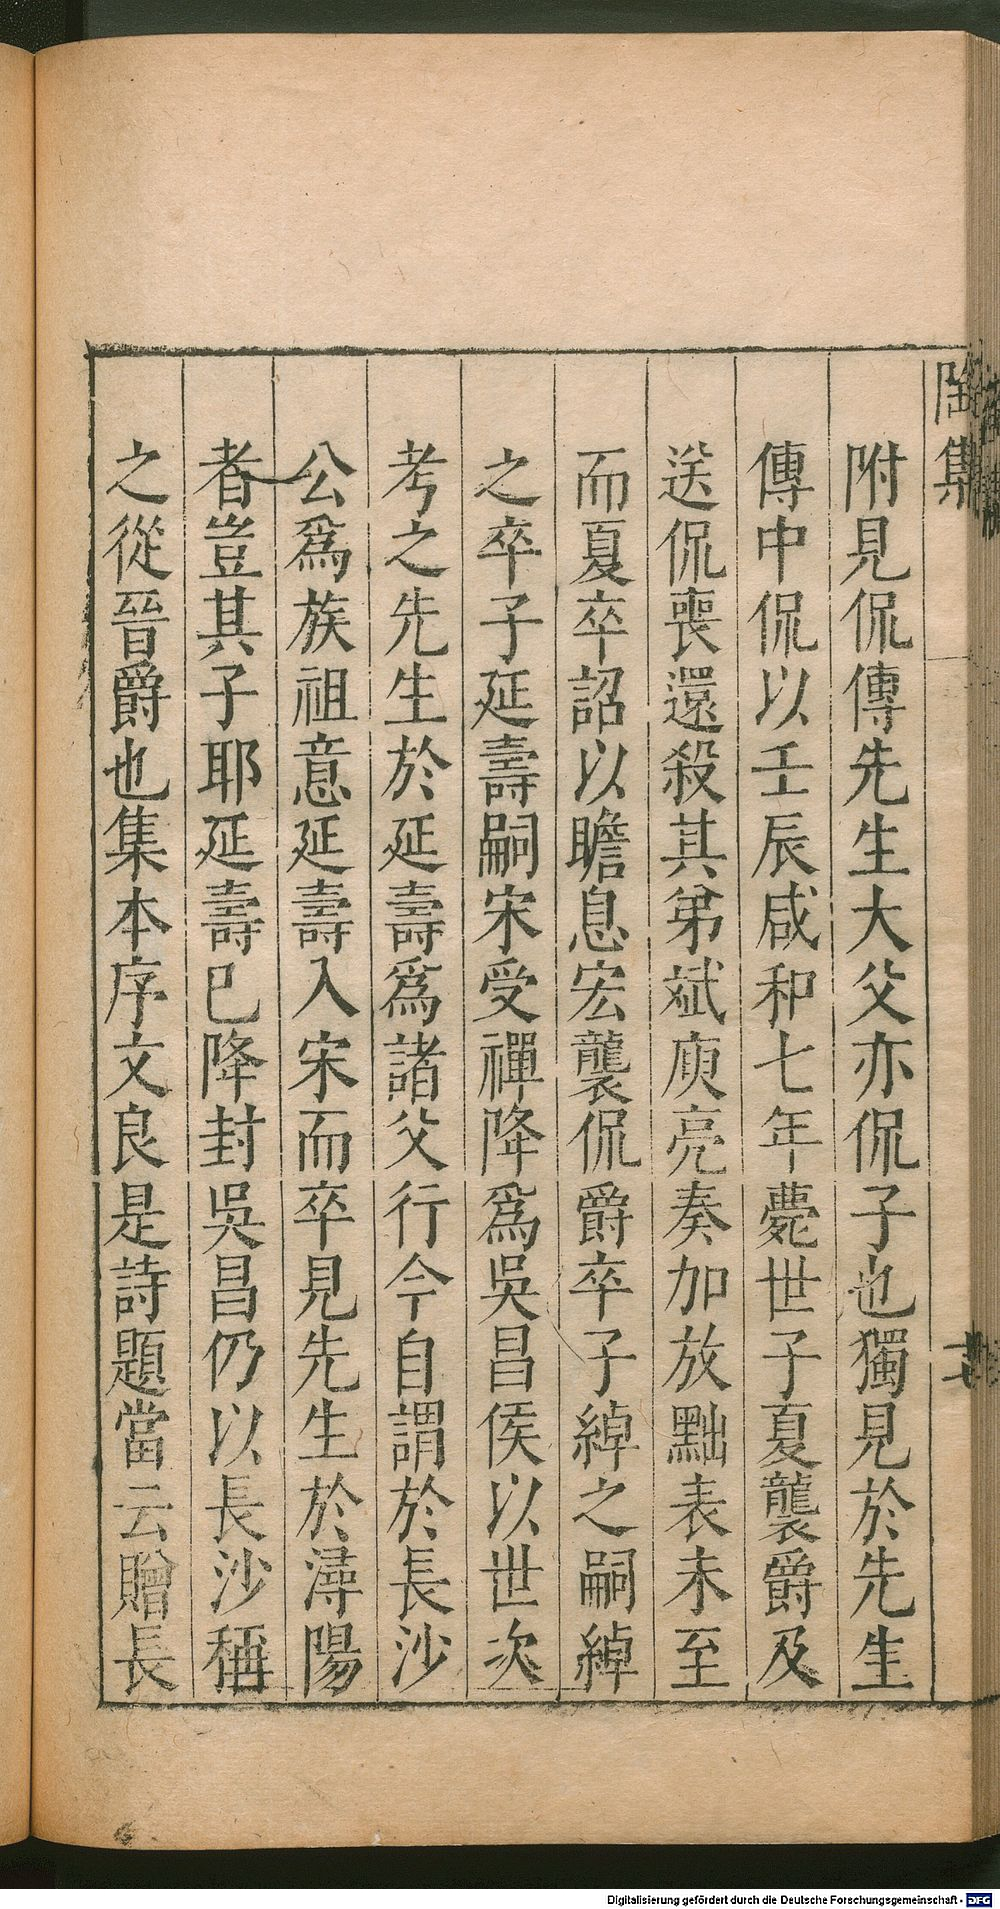 陶集
附見侃傳先生大父亦侃子也獨見於先生
傳中侃以壬辰咸和七年薨世子夏襲爵及
送侃喪還殺其弟斌庾亮奏加放黜表未至
而夏卒詔以瞻息宏襲侃爵卒子綽之嗣綽
之卒子延壽嗣宋受禪降爲吳昌侯以世次
考之先生於延壽爲諸父行今自謂於長沙
公爲族祖意延壽入宋而卒見先生於潯陽
者豈其子耶延壽已降封吳昌仍以長沙稱
之從晉爵也集本序文良是詩題當云贈長
Digitalisierung gefördert durch die Deutsche Forschungsgemeinschaft - DFG